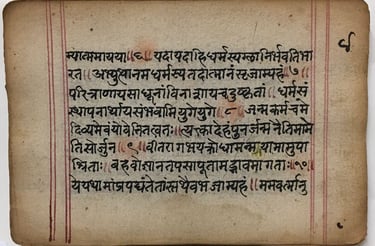 म्यात्ममायया॥६॥यदायदाहिधर्मस्यग्लानिर्भवतिभा
रत॥अभ्युत्थानमधर्मस्यतदात्मानंसृजाम्यहं॥७॥
परित्राणायसाधूनांविनाशायचदुष्कृतां॥धर्मसं
स्थापनार्थायसंभवामियुगेयुगे॥८॥जन्मकर्मचमे
दिव्यमेवंयोवेत्तितत्वतः॥त्यक्त्वादेहंपुनर्जन्मनैतिमामे
तिसोर्जुन॥९॥वीतरागभयक्रोधामन्मयामामुपा
श्रिताः॥बहवोज्ञानतपसापूतामद्भावमागताः॥१०॥
येयथामांप्रपद्यंतेतांस्तथैवभजाम्यहं॥ममवर्त्मानु